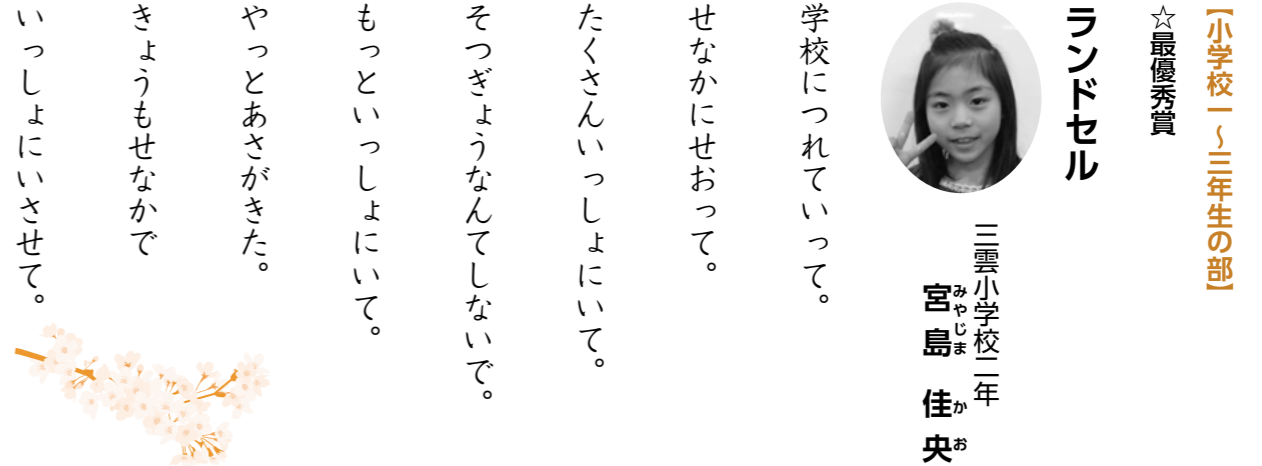 【小学校一～三年生の部】
☆最優秀賞
ランドセル
三雲小学校二年
宮島 佳央
みやじま かお
学校につれていって。
せなかにせおって。
たくさんいっしょにいて。
そつぎょうなんてしないで。
もっといっしょにいて。
やっとあさがきた。
きょうもせなかで
いっしょにいさせて。